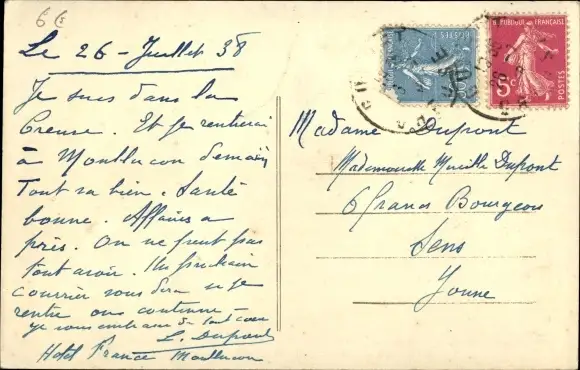 66
Le 26 - Juillet 38
Je suis dans la
Creuse. Et je rentrerai
à Montlucon demain
Tout va bien. Santé
bonne. Affaires a
près. On ne peut pas
tout avoir. Un prochain
courrier vous dira si je
rentre ou continue
je vous embrasse de tout coeur
L. Dupont
Hotel France Montlucon
REPUBLIQUE FRANÇAISE
5c
POSTES
Madame Dupont
Mademoiselle Mireille Dupont
6 Francs Bourgeois
Sens
Yonne